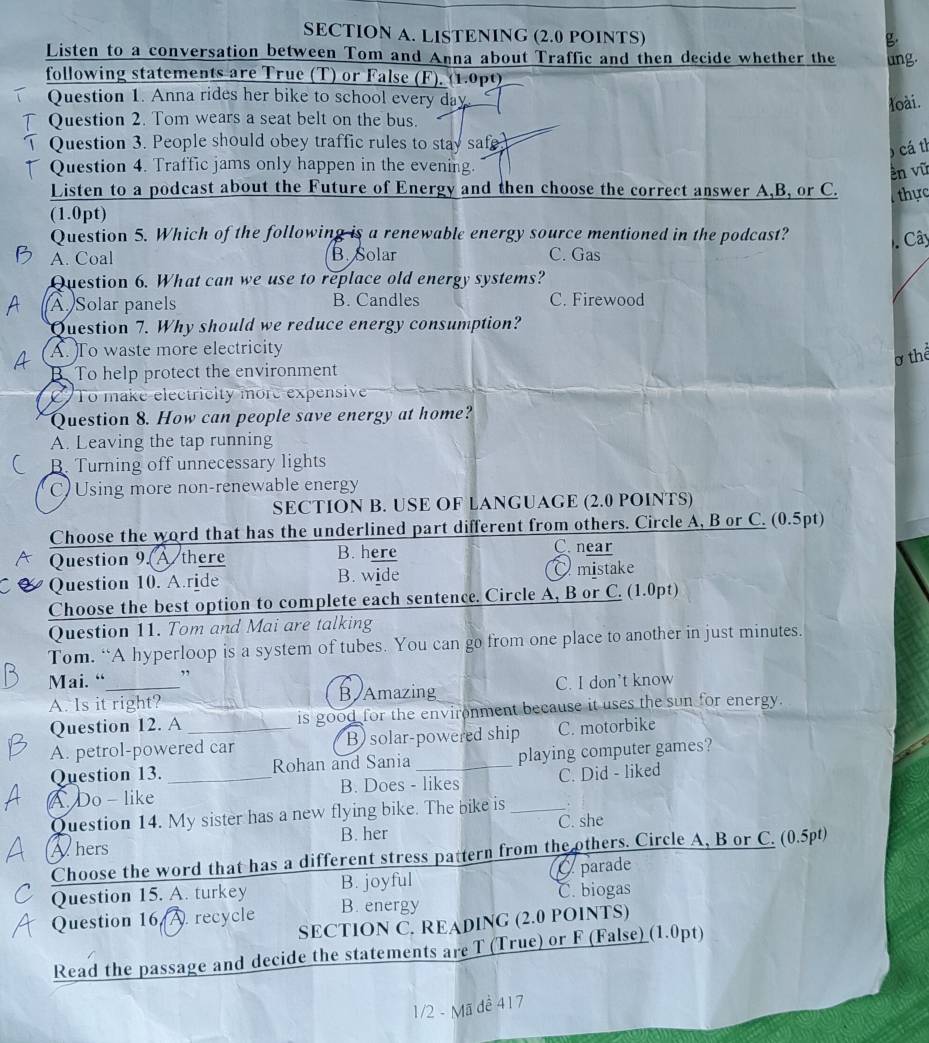 SECTION A. LISTENING (2.0 POINTS)
Listen to a conversation between Tom and Anna about Traffic and then decide whether the
following statements are True (T) or False (F). (1.0pt)
T Question 1. Anna rides her bike to school every day. T
T Question 2. Tom wears a seat belt on the bus.
T Question 3. People should obey traffic rules to stay safe.
T Question 4. Traffic jams only happen in the evening.
Listen to a podcast about the Future of Energy and then choose the correct answer A,B, or C.
(1.0pt)
Question 5. Which of the following is a renewable energy source mentioned in the podcast?
B A. Coal B. Solar C. Gas
Question 6. What can we use to replace old energy systems?
A A. Solar panels B. Candles C. Firewood
Question 7. Why should we reduce energy consumption?
A. To waste more electricity
A B. To help protect the environment
C. To make electricity more expensive
Question 8. How can people save energy at home?
A. Leaving the tap running
C B. Turning off unnecessary lights
C. Using more non-renewable energy
SECTION B. USE OF LANGUAGE (2.0 POINTS)
Choose the word that has the underlined part different from others. Circle A, B or C. (0.5pt)
A Question 9. A. there B. here C. near
C Question 10. A.ride B. wide C. mistake
Choose the best option to complete each sentence. Circle A, B or C. (1.0pt)
Question 11. Tom and Mai are talking
Tom. “A hyperloop is a system of tubes. You can go from one place to another in just minutes.
B Mai. “________”
A. Is it right? B. Amazing C. I don't know
Question 12. A __________ is good for the environment because it uses the sun for energy.
B A. petrol-powered car B. solar-powered ship C. motorbike
Question 13. __________ Rohan and Sania __________ playing computer games?
A A. Do – like B. Does - likes C. Did - liked
Question 14. My sister has a new flying bike. The bike is ______.
A A. hers B. her C. she
Choose the word that has a different stress pattern from the others. Circle A, B or C. (0.5pt)
C Question 15. A. turkey B. joyful C. parade
A Question 16. A. recycle B. energy C. biogas
SECTION C. READING (2.0 POINTS)
Read the passage and decide the statements are T (True) or F (False) (1.0pt)
1/2 - Mã đề 417
g.
ung.
loài.
cá th
ên vữ
thực
. Cây
ơ thể